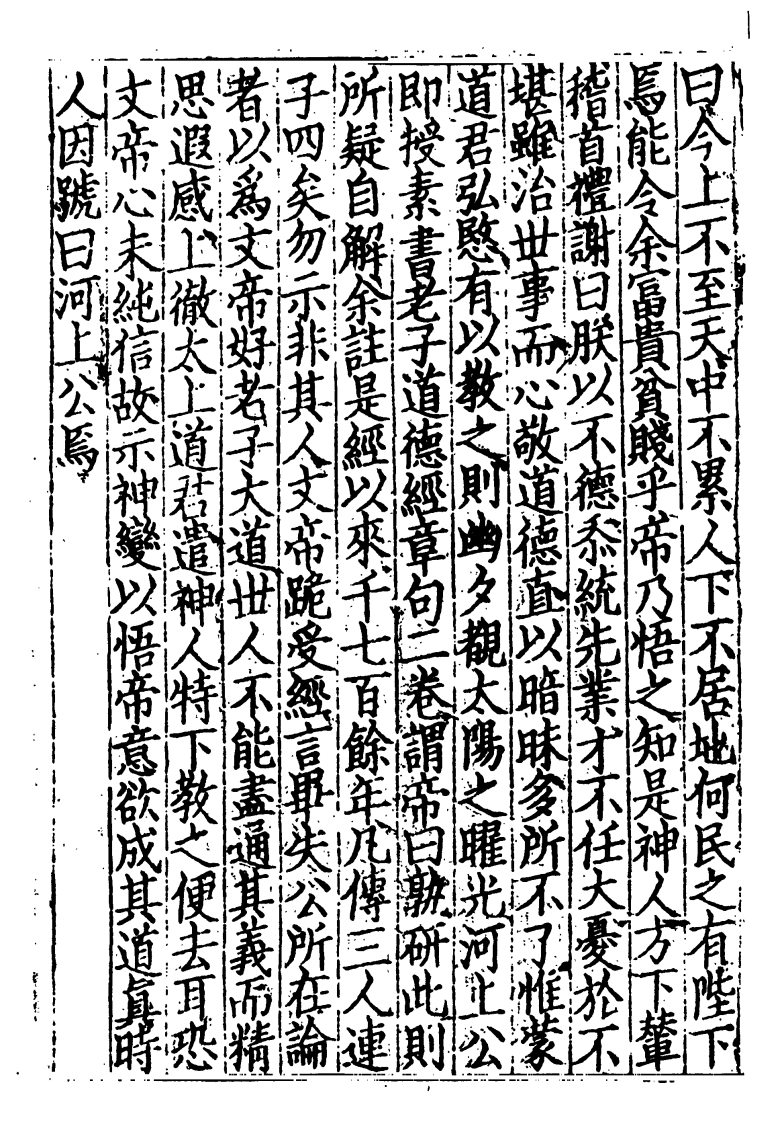 曰今上不至天中不累人下不居地何民之有陛下
焉能令余富貴貧賤乎帝乃悟之知是神人方下輦
稽首禮謝曰朕以不德忝統先業才不任大憂於不
堪雖治世事而心敬道德直以暗昧多所不了惟蒙
道君弘愍有以教之則幽夕覩太陽之曜光河上公
即授素書老子道德經章句二卷謂帝曰熟研此則
所疑自解余註是經以來千七百餘年凡傳三人連
子四矣勿示非其人文帝跪受經言畢失公所在論
者以爲文帝好老子大道世人不能盡通其義而精
思遐感上徹太上道君遣神人特下教之便去耳恐
文帝心未純信故示神變以悟帝意欲成其道眞時
人因號曰河上公焉